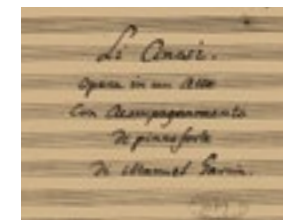 Li Cinesi.
Opera in un Atto
Con Acompagnamento
Di pianoforte
Di Manuel Garcia.